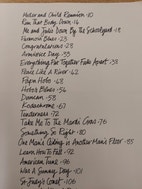 Mother and Child Reunion - 10
Run That Body Down - 14
Me and Julio Down By The Schoolyard - 18
Paranoia Blues - 23
Congratulations - 28
Armistice Day - 33
Everything Put Together Falls Apart - 38
Peace Like A River - 42
Papa Hobo - 48
Hobo's Blues - 54
Duncan - 58
Kodachrome - 67
Tenderness - 72
Take Me To The Mardi Gras - 76
Something So Right - 80
One Man's Ceiling is Another Man's Floor - 85
Learn How To Fall - 92
American Tune - 96
Was A Sunny Day - 101
St. Judy's Comet - 106